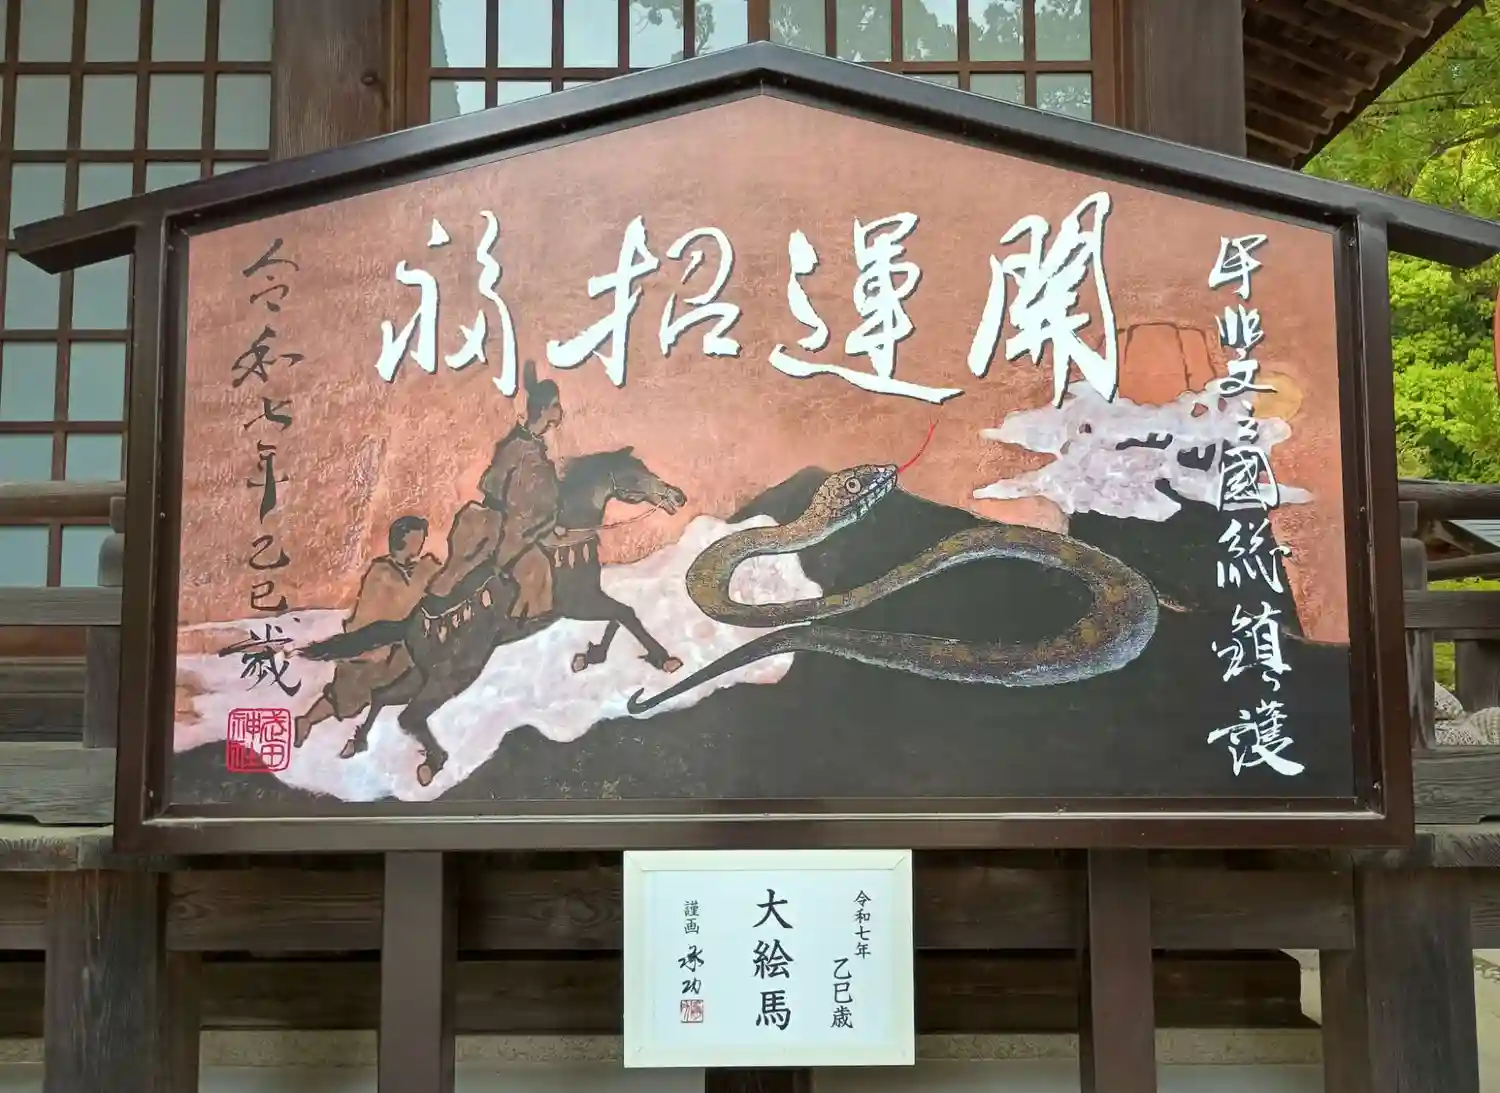 甲斐之國総鎮護
開運招福
令和七年乙巳歳
武田神社
令和七年 乙巳歳
大絵馬
謹画 承功